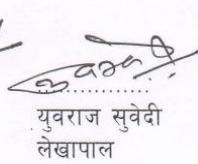 युवराज सुवेदी
लेखापाल